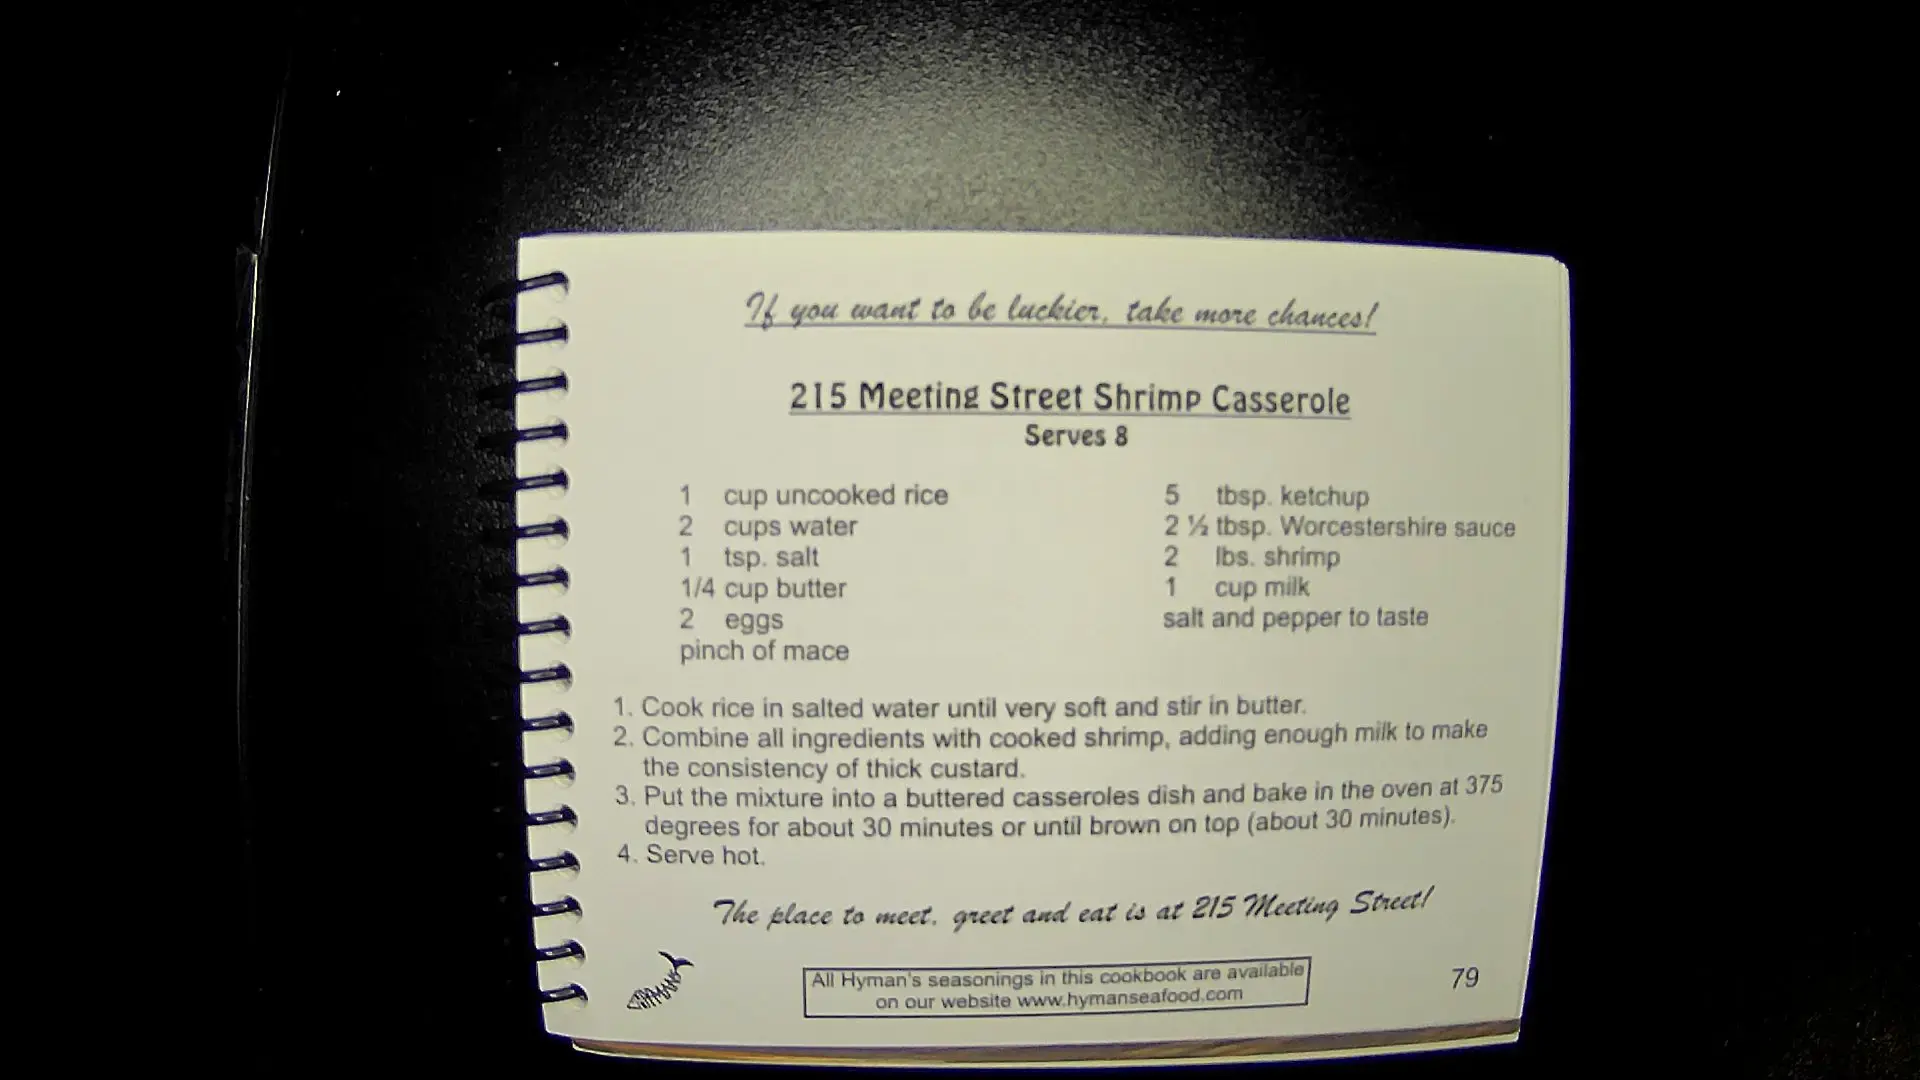 If you want to be luckier, take more chances!
215 Meeting Street Shrimp Casserole
Serves 8
1 cup uncooked rice
2 cups water
1 tsp. salt
1/4 cup butter
2 eggs
pinch of mace
5 tbsp. ketchup
2 ½ tbsp. Worcestershire sauce
2 lbs. shrimp
1 cup milk
salt and pepper to taste
1. Cook rice in salted water until very soft and stir in butter.
2. Combine all ingredients with cooked shrimp, adding enough milk to make
the consistency of thick custard.
3. Put the mixture into a buttered casseroles dish and bake in the oven at 375
degrees for about 30 minutes or until brown on top (about 30 minutes).
4. Serve hot.
The place to meet, greet and eat is at 215 Meeting Street!
HYMANS
All Hyman's seasonings in this cookbook are available
on our website www.hymanseafood.com
79